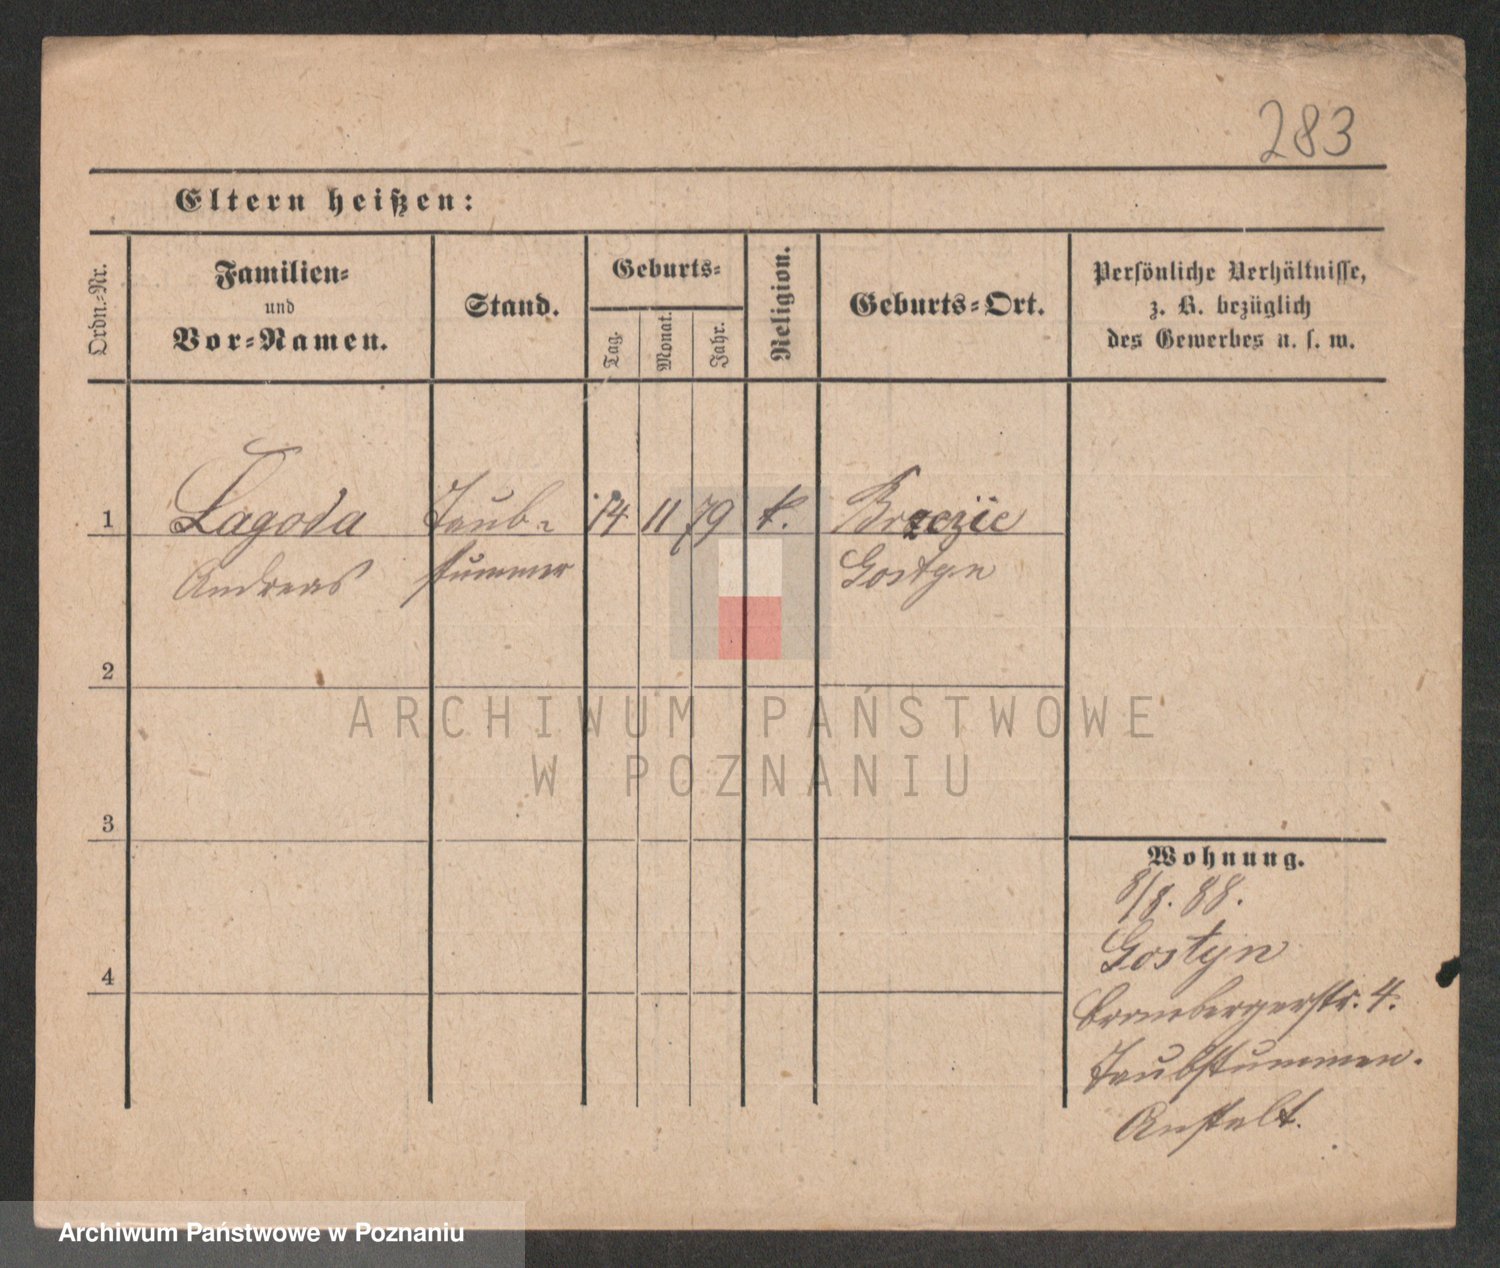 283
Eltern heißen:
Ordn.-Nr.
Familien-
und
Vor-Namen.
Stand.
Geburts-
Tag.
Monat.
Jahr.
Religion.
Geburts-Ort.
Persönliche Verhältnisse,
z. B. bezüglich
des Gewerbes u. s. w.
1
Lagoda
Taub-
14
11
79
k.
Brzezie
Andreas
stummer
Gostyn
2
3
4
Wohnung.
8/8. 88.
Gostyn
Brombergerstr. 4.
Taubstummen-
Anstalt.
ARCHIWUM PAŃSTWOWE
W POZNANIU
Archiwum Państwowe w Poznaniu